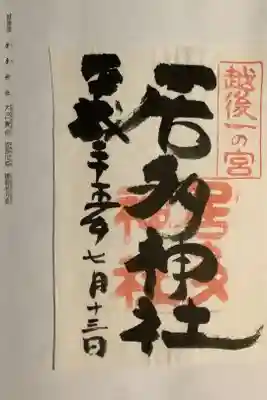 越後一の宮
居多神社
居多神社
平成二十五年七月十三日